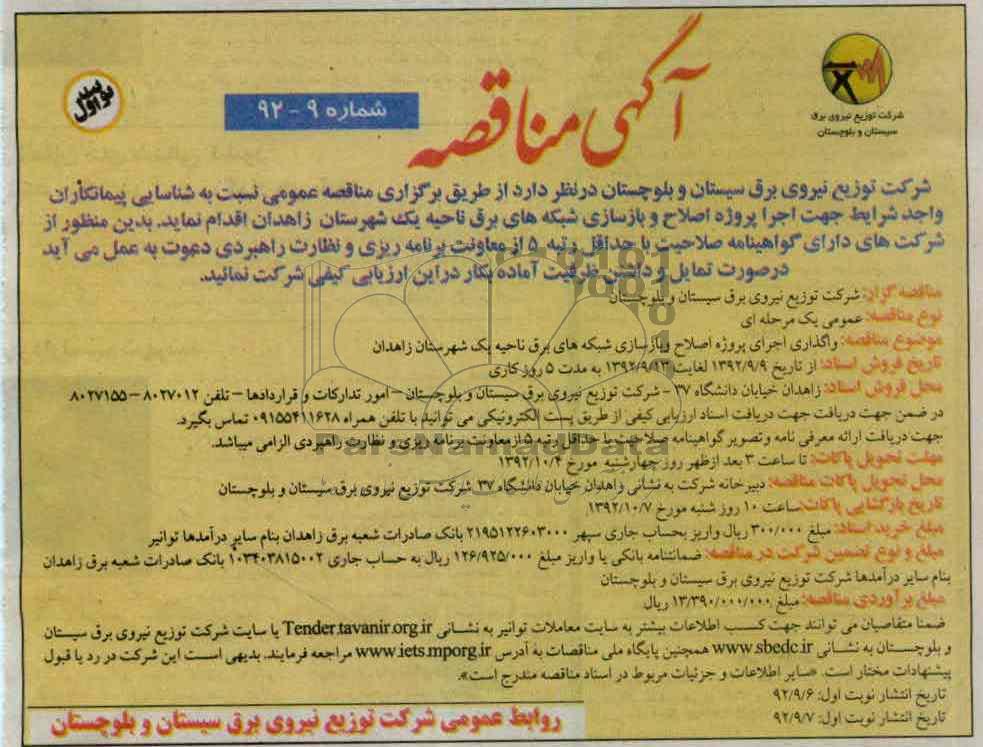 شرکت توزیع نیروی برق
سیستان و بلوچستان
آگهی مناقصه
شماره ۹ - ۹۲
نوبت اول
شرکت توزیع نیروی برق سیستان و بلوچستان درنظر دارد از طریق برگزاری مناقصه عمومی نسبت به شناسایی پیمانکاران
واجد شرایط جهت اجرا پروژه اصلاح و بازسازی شبکه های برق ناحیه یک شهرستان زاهدان اقدام نماید. بدین منظور از
شرکت های دارای گواهینامه صلاحیت با حداقل رتبه ۵ از معاونت برنامه ریزی و نظارت راهبردی دعوت به عمل می آید
درصورت تمایل و داشتن ظرفیت آماده بکار دراین ارزیابی کیفی شرکت نمائید.
مناقصه گزار: شرکت توزیع نیروی برق سیستان و بلوچستان
نوع مناقصه: عمومی یک مرحله ای
موضوع مناقصه: واگذاری اجرای پروژه اصلاح وبازسازی شبکه های برق ناحیه یک شهرستان زاهدان
تاریخ فروش اسناد: از تاریخ ۱۳۹۲/۹/۹ لغایت ۱۳۹۲/۹/۱۳ به مدت ۵ روز کاری
محل فروش اسناد: زاهدان خیابان دانشگاه ۳۷ - شرکت توزیع نیروی برق سیستان و بلوچستان - امور تدارکات و قراردادها - تلفن ۸۰۲۷۰۱۲ - ۸۰۲۷۱۵۵
در ضمن جهت دریافت جهت دریافت اسناد ارزیابی کیفی از طریق پست الکترونیکی می توانید با تلفن همراه ۰۹۱۵۵۴۱۱۶۲۸ تماس بگیرد.
جهت دریافت ارائه معرفی نامه وتصویر گواهینامه صلاحیت با حداقل رتبه ۵ ازمعاونت برنامه ریزی و نظارت راهبردی الزامی میباشد.
مهلت تحویل پاکات: تا ساعت ۳ بعد ازظهر روز چهارشنبه مورخ ۱۳۹۲/۱۰/۴
محل تحویل پاکات مناقصه: دبیرخانه شرکت به نشانی زاهدان خیابان دانشگاه ۳۷ شرکت توزیع نیروی برق سیستان و بلوچستان
تاریخ بازگشایی پاکات: ساعت ۱۰ روز شنبه مورخ ۱۳۹۲/۱۰/۷
مبلغ خرید اسناد: مبلغ ۳۰۰/۰۰۰ ریال واریز بحساب جاری سپهر ۲۱۹۵۱۲۲۶۰۳۰۰۰ بانک صادرات شعبه برق زاهدان بنام سایر درآمدها توانیر
مبلغ و نوع تضمین شرکت در مناقصه: ضمانتنامه بانکی یا واریز مبلغ ۱۲۶/۹۲۵/۰۰۰ ریال به حساب جاری ۱۰۳۴۰۳۸۱۵۰۰۲ بانک صادرات شعبه برق زاهدان
بنام سایر درآمدها شرکت توزیع نیروی برق سیستان و بلوچستان
مبلغ برآوردی مناقصه: مبلغ ۱۳/۳۹۰/۰۰۰/۰۰۰ ریال
ضمنا متقاضیان می توانند جهت کسب اطلاعات بیشتر به سایت معاملات توانیر به نشانی Tender.tavanir.org.ir یا سایت شرکت توزیع نیروی برق سیستان
و بلوچستان به نشانی www.sbedc.ir همچنین پایگاه ملی مناقصات به آدرس www.iets.mporg.ir مراجعه فرمایند. بدیهی است این شرکت در رد یا قبول
پیشنهادات مختار است. «سایر اطلاعات و جزئیات مربوط در اسناد مناقصه مندرج است».
تاریخ انتشار نوبت اول: ۹۲/۹/۶
تاریخ انتشار نوبت اول: ۹۲/۹/۷
روابط عمومی شرکت توزیع نیروی برق سیستان و بلوچستان
ParsNamadData